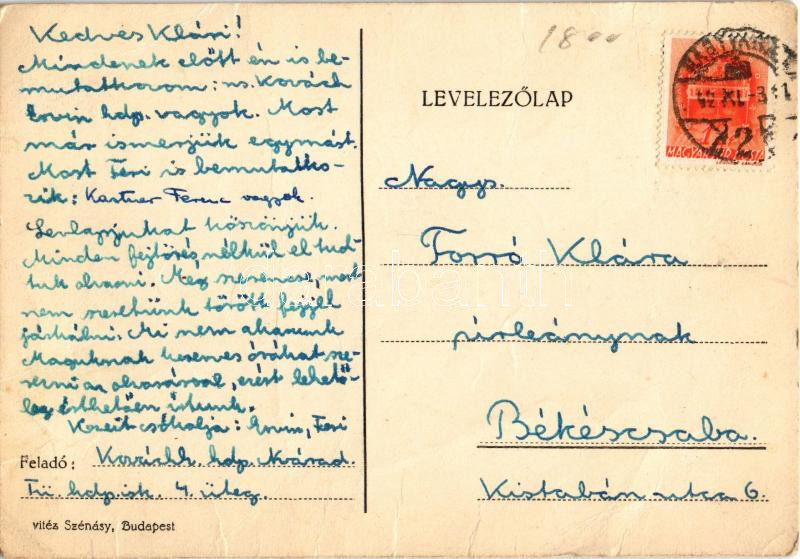 Kedves Klári!
Mindenek előtt én is be-
mutatkozom: ns. Kovách
Ervin hdp. vagyok. Most
már ismerjük egymást.
Most Feri is bemutatko-
zik: Kantner Ferenc vagyok.
Levlapjukat köszönjük.
Minden fejtörés nélkül el tud-
tuk olvasni. Még szerencse, mert
nem szeretünk törött fejjel
járkálni. Mi nem akarunk
Maguknak keserves órákat sze-
rezni az olvasással, ezért lehető-
leg érthetően írtunk.
Kezeit csókolja: Ervin, Feri
Feladó: Kovách hdp. Nvárad
Tü. hdp. isk. 4. üteg.
vitéz Szénásy, Budapest
1800
LEVELEZŐLAP
42 XI. -3
MAGYAR KIR. POSTA
Nagys.
Forró Klára
úrleánynak
Békéscsaba.
Kistabán-utca 6.